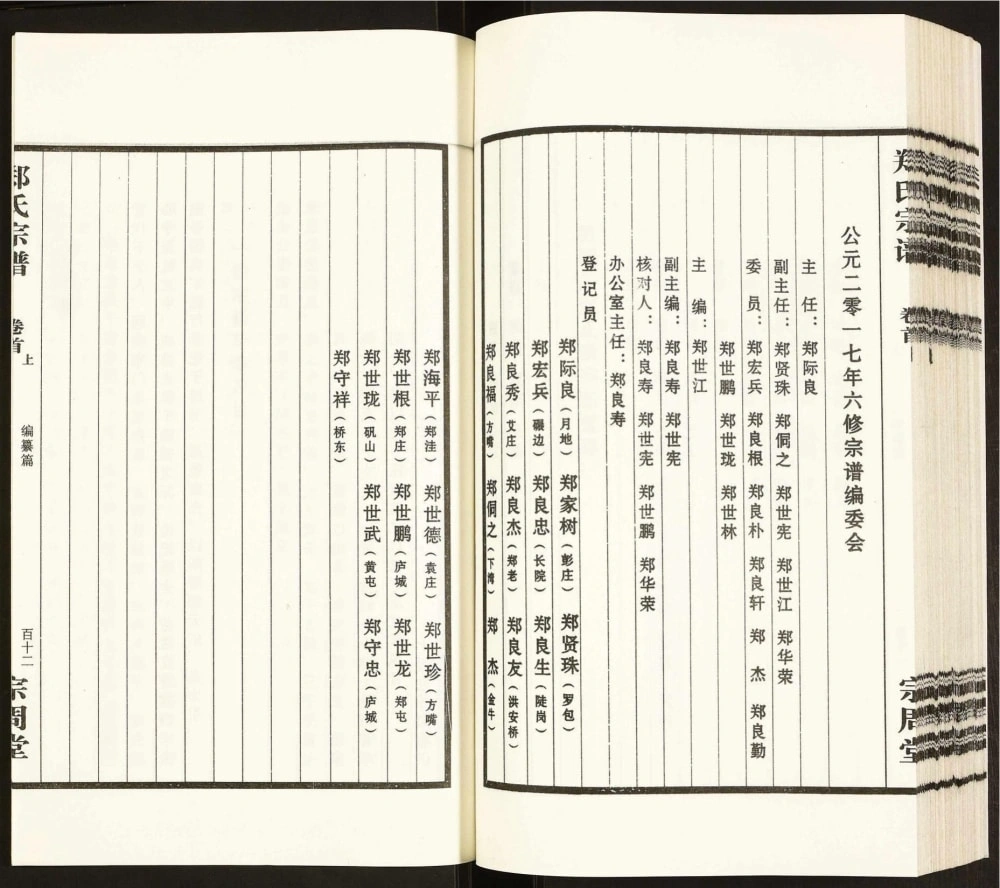 郑氏宗谱 卷首 宗周堂
公元二零一七年六修宗谱编委会
主任：郑际良
副主任：郑贤珠 郑侗之 郑世宪 郑世江 郑华荣
委员：郑宏兵 郑良根 郑良朴 郑良轩 郑杰 郑良勤
郑世鹏 郑世珑 郑世林
主编：郑世江
副主编：郑良寿 郑世宪
核对人：郑良寿 郑世宪 郑世鹏 郑华荣
办公室主任：郑良寿
登记员
郑际良（月地） 郑家树（彭庄） 郑贤珠（罗包）
郑宏兵（碾边） 郑良忠（长院） 郑良生（陡岗）
郑良秀（艾庄） 郑良杰（郑老） 郑良友（洪安桥）
郑良福（方嘴） 郑侗之（下湾） 郑杰（金牛）
郑海平（郑洼） 郑世德（袁庄） 郑世珍（方嘴）
郑世根（郑庄） 郑世鹏（庐城） 郑世龙（郑屯）
郑世珑（矾山） 郑世武（黄屯） 郑守忠（庐城）
郑守祥（桥东）
郑氏宗谱 卷首上 编纂篇 百十二 宗周堂